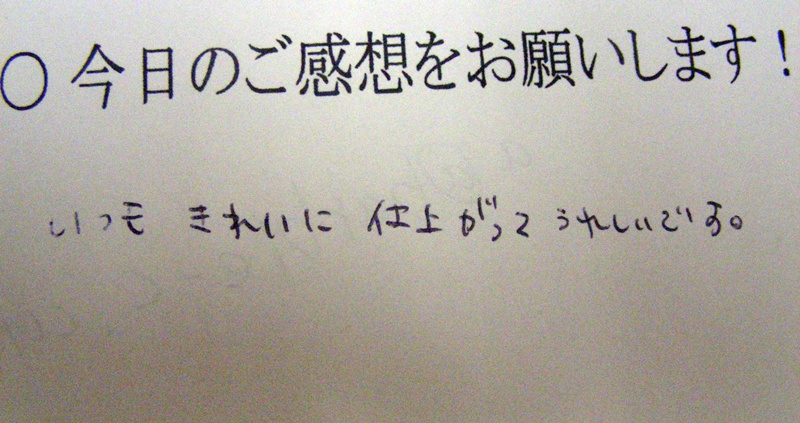 ○ 今日のご感想をお願いします！
いつも きれいに 仕上がって うれしいです。